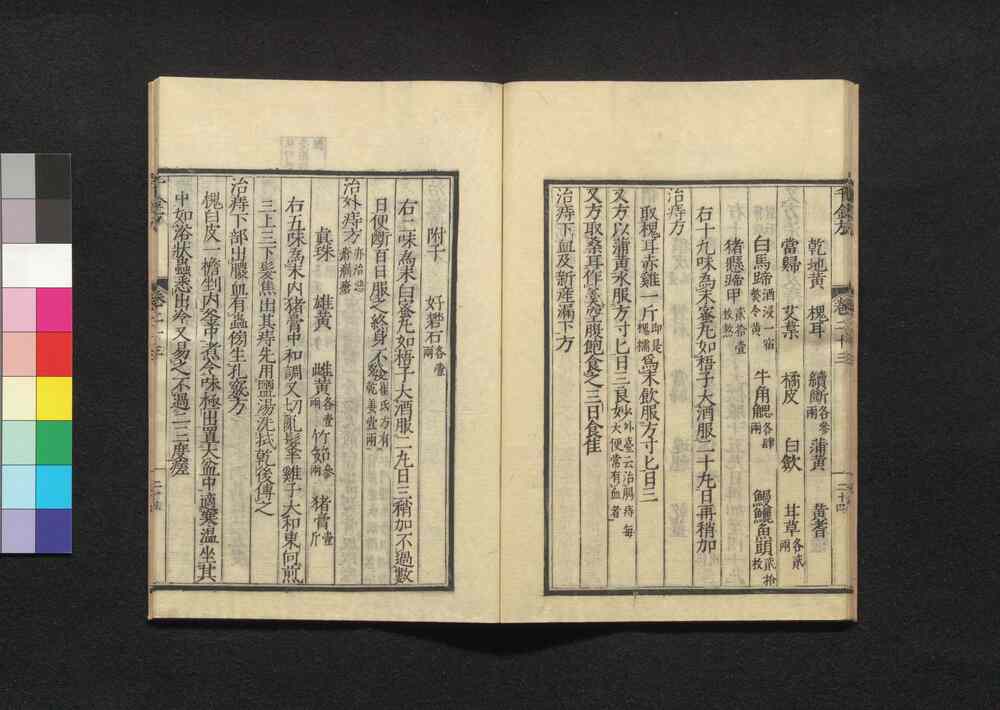 千金方
卷二十三
二十四
乾地黃 槐耳 續斷各參兩 蒲黃 黃耆
當歸 艾葉 橘皮 白歛 甘草各貳兩
白馬蹄酒浸一宿熬令黃 牛角䚡各肆兩 鰻鱺魚頭貳拾枚
猪懸蹄甲貳拾壹枚熬
右十九味爲末蜜丸如梧子大酒服二十九日再稍加
治痔方
取槐耳赤雞一斤即是槐檽爲末飲服方寸匕日三
又方以蒲黃水服方寸匕日三良妙外臺云治腸痔每大便常有血者
又方取桑耳作羹空腹飽食之三日食隹
治痔下血及新産漏下方
附子 好礬石各壹兩
右二味爲末白蜜丸如梧子大酒服二丸日三稍加不過數
日便斷百日服之終身不發崔氏方有乾姜壹兩
治外痔方
眞珠 雄黃 雌黃各壹兩 竹筎參兩 猪膏壹斤
右五味爲末内猪膏中和調又切亂髮半雞子大和東向煎
三上三下髮焦出其痔先用鹽湯洗拭乾後傅之
治痔下部出膿血有蟲傍生孔竅方
槐白皮一檐剉内釜中煮令味極出置大盆中適寒温坐其
中如浴狀蟲悉出冷又易之不過二三度瘥